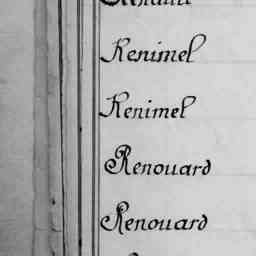 Kenimel
Kenimel
Renouard
Renouard